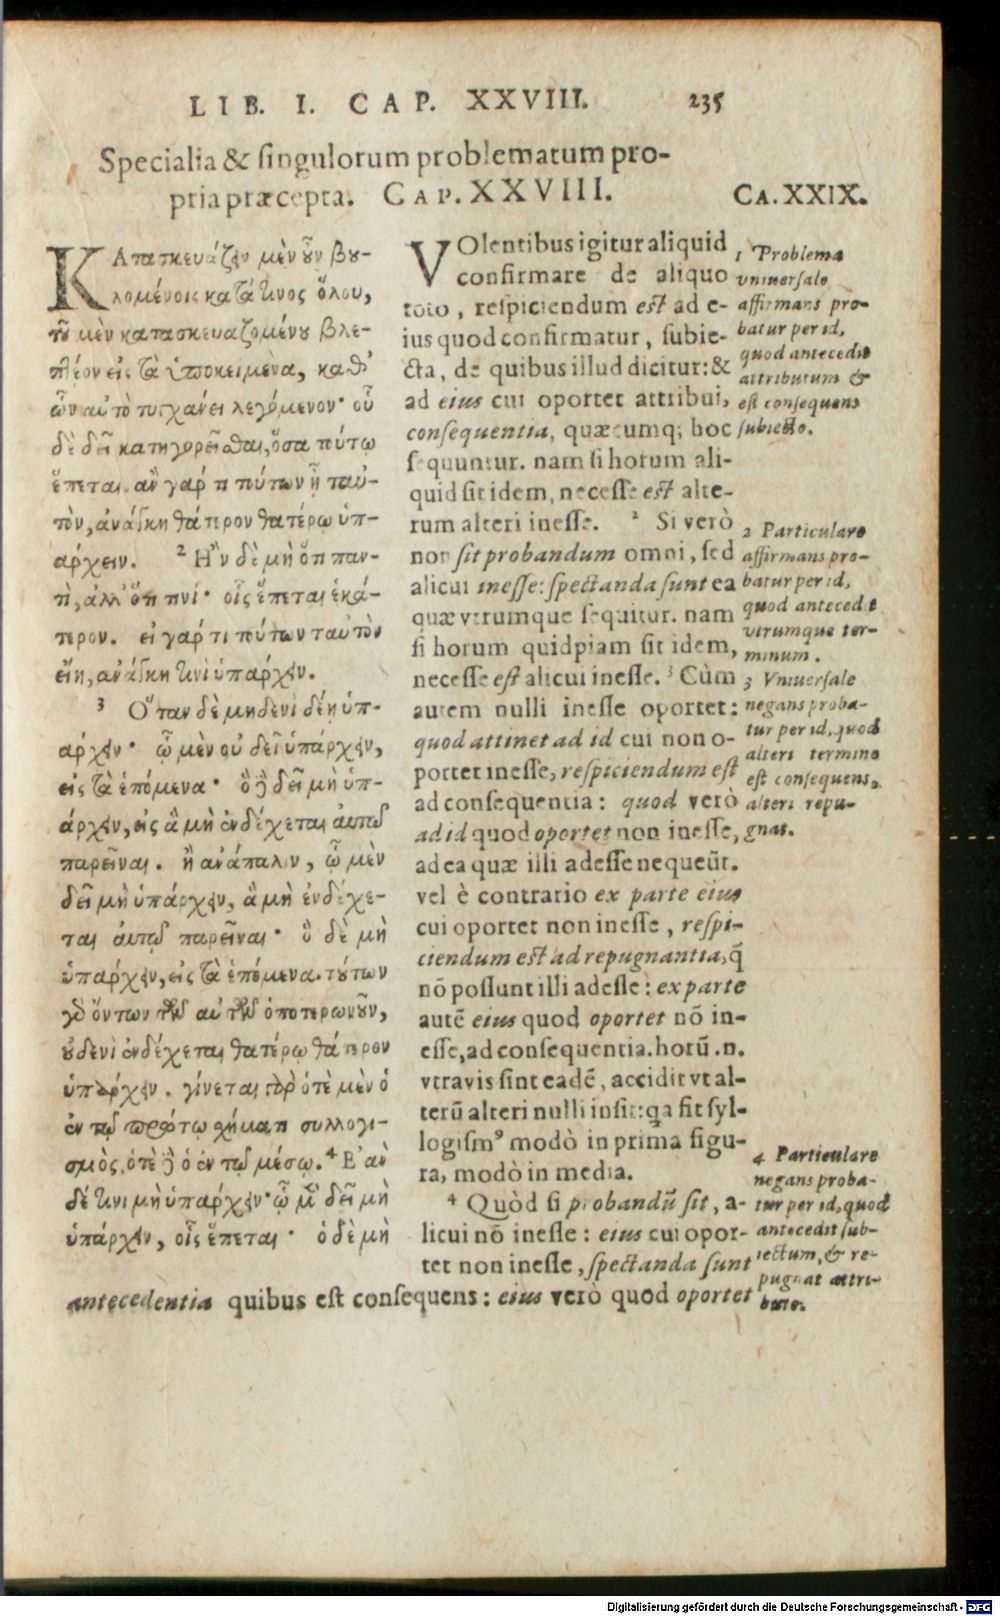 LIB. I. CAP. XXVIII. 235
Specialia & singulorum problematum pro-
pria præcepta. CAP. XXVIII.
CA. XXIX.
ΚΑτασκευάζειν μὲν οὖν βου-
λομένοις κατά τινος ὅλου,
τοῦ μὲν κατασκευαζομένου βλε-
πτέον εἰς τὰ ὑποκείμενα, καθ'
ὧν αὐτὸ τυγχάνει λεγόμενον· οὗ
δὲ δεῖ κατηγορεῖσθαι, ὅσα τούτῳ
ἕπεται. ἂν γάρ τι τούτων ᾖ ταὐ-
τὸν, ἀνάγκη θάτερον θατέρῳ ὑπ-
άρχειν. 2 Ἢν δὲ μὴ ὅτι παν-
τὶ, ἀλλ' ὅτι τινί· οἷς ἕπεται ἑκά-
τερον. εἰ γάρ τι τούτων ταυτὸν
εἴη, ἀνάγκη τινὶ ὑπάρχειν.
3 Ὅταν δὲ μηδενὶ δέῃ ὑπ-
άρχειν· ᾧ μὲν οὐ δεῖ ὑπάρχειν,
εἰς τὰ ἑπόμενα· ὃ δὲ δεῖ μὴ ὑπ-
άρχειν, εἰς ἃ μὴ ἐνδέχεται αὐτῷ
παρεῖναι. ἢ ἀνάπαλιν, ᾧ μὲν
δεῖ μὴ ὑπάρχειν, ἃ μὴ ἐνδέχε-
ται αὐτῷ παρεῖναι· ὃ δὲ μὴ
ὑπάρχειν, εἰς τὰ ἑπόμενα. τούτων
γὰρ ὄντων τῶν αὐτῶν ὁποτερωνοῦν,
οὐδενὶ ἐνδέχεται θατέρῳ θάτερον
ὑπάρχειν. γίνεται γὰρ ὁτὲ μὲν ὁ
ἐν τῷ πρώτῳ σχήματι συλλογι-
σμὸς, ὁτὲ δὲ ὁ ἐν τῷ μέσῳ. 4 Ἐὰν
δέ τινι μὴ ὑπάρχειν· ᾧ μὲν δεῖ μὴ
ὑπάρχειν, οἷς ἕπεται· ὁ δὲ μὴ
VOlentibus igitur aliquid
confirmare de aliquo
toto, respiciendum est ad e-
ius quod confirmatur, subie-
cta, de quibus illud dicitur: &
ad eius cui oportet attribui,
consequentia, quæcumq; hoc
sequuntur. nam si horum ali-
quid sit idem, necesse est alte-
rum alteri inesse. 2 Si verò
non sit probandum omni, sed
alicui inesse: spectanda sunt ea
quæ vtrumque sequitur. nam
si horum quidpiam sit idem,
necesse est alicui inesse. 3 Cùm
autem nulli inesse oportet:
quod attinet ad id cui non o-
portet inesse, respiciendum est
ad consequentia: quod verò
ad id quod oportet non inesse,
ad ea quæ illi adesse nequeūt.
vel è contrario ex parte eius
cui oportet non inesse, respi-
ciendum est ad repugnantia, q̄
nō possunt illi adesse: ex parte
autē eius quod oportet nō in-
esse, ad consequentia. horū .n.
vtravis sint eadē, accidit vt al-
terū alteri nulli insit: qa fit syl-
logism⁹ modò in prima figu-
ra, modò in media.
4 Quòd si probandū sit, a-
licui nō inesse: eius cui opor-
tet non inesse, spectanda sunt
antecedentia quibus est consequens: eius verò quod oportet
1 Problema
vniuersale
affirmans pro-
batur per id,
quod antecedit
attributum &
est consequens
subiecto.
2 Particulare
affirmans pro-
batur per id,
quod antecedit
vtrumque ter-
minum.
3 Vniuersale
negans proba-
tur per id, quod
alteri termino
est consequens,
alteri repu-
gnat.
4 Particulare
negans proba-
tur per id, quod
antecedit sub-
iectum, & re-
pugnat attri-
buto.
Digitalisierung gefördert durch die Deutsche Forschungsgemeinschaft - DFG